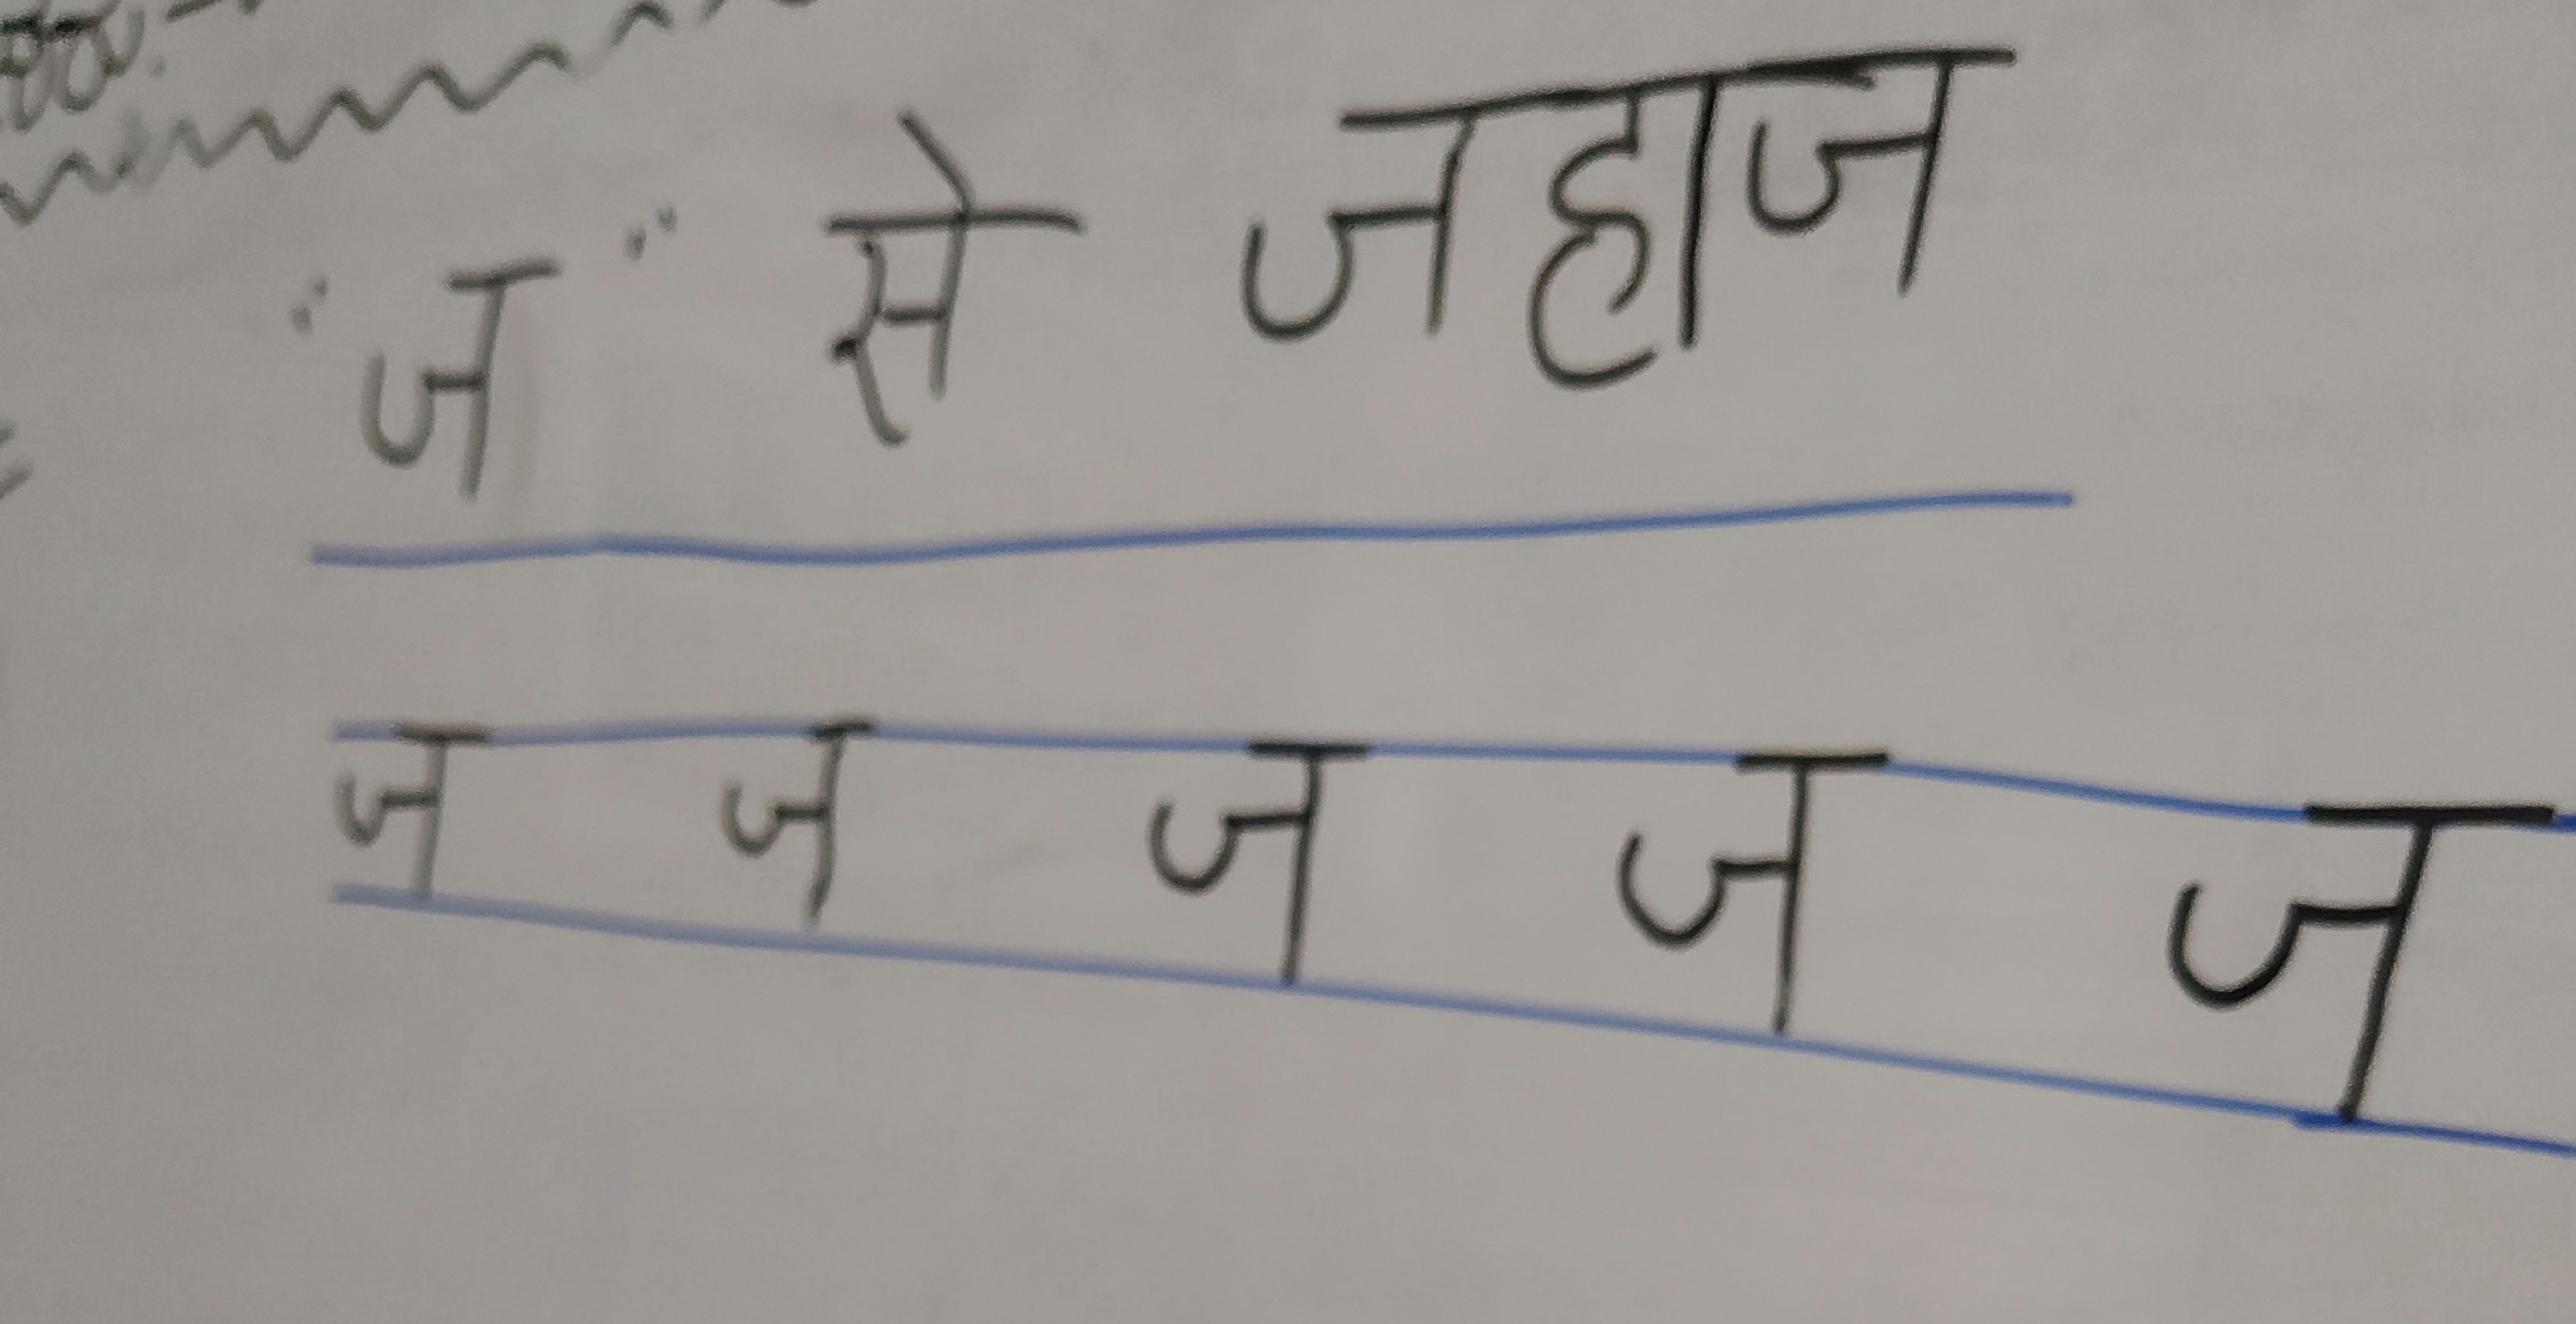 "ज" से जहाज
ज ज ज ज ज